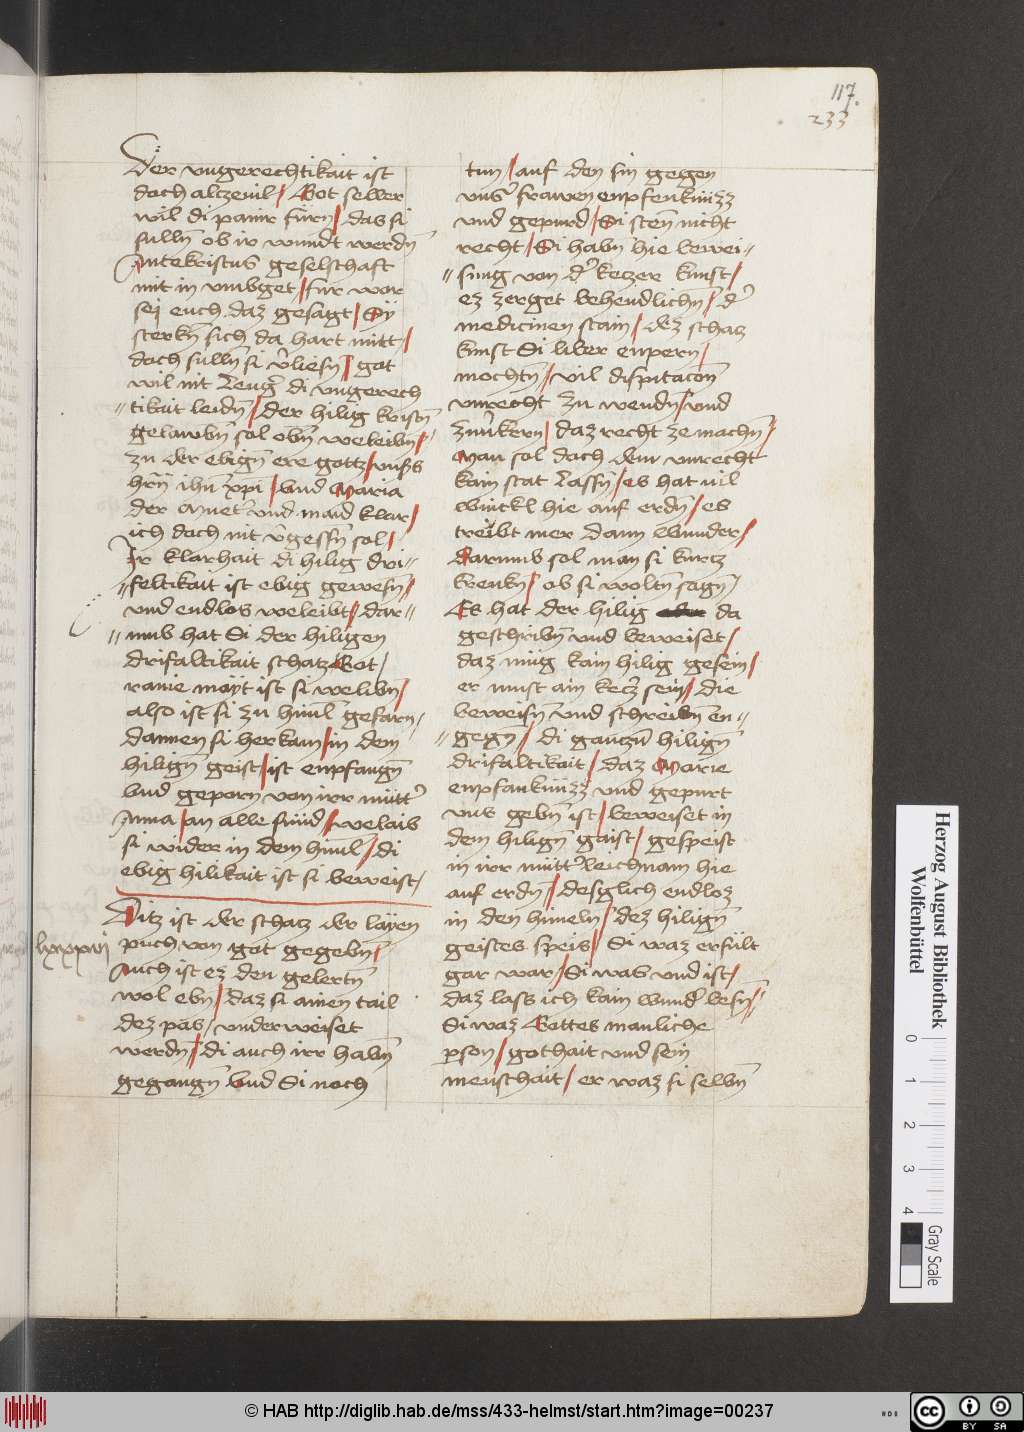 117.
233
Der vngerechtikait ist
doch alczeuil / Got selber
wil di panir fürn / das si
sulln̄ ob ir wundt werdn̄
Antekristus geselschaft
mit in vmbget / für wor
sej euch daz gesagt / Sÿ
sterkn̄ sich da hart mitt /
doch sulln̄ si v̓liesn̄ / got
wil nit leng̓ di vngerech
tikait leidn̄ / der hilig kristn̄
gelawbn̄ sol obn̄ weleibn̄ /
zu der ebign̄ ere gottz / vnßs
hrn̄ ihū xp̄i / vnd Maria
der Muet̓ vnd maid klar /
ich doch nit v̓gessn̄ sol /
Ir klarhait di hilig dri
feltikait ist ebig gewesn̄ /
vnd endlos weleibt / dar
vmb hat Si der hiligen
drifaltikait schatz / Got /
raine mayt ist si welibn̄ /
also ist si zu himl̄ gefarn /
dannen si her kam / in dem
hilign̄ geist / ist enpfangn̄
vnd geporn von irr mütt̓
Anna / an alle sünd / welaib
si wider in dem himl̄ / di
ebig hilikait ist si beweist /
lxxxvij
Ditz ist der schatz der layen
puch von got gegebn̄ /
Auch ist ez den gelertn̄
wol ebn̄ / daz si ainen tail
dez pas / vnderweiset
werdn̄ / di auch irr habn̄
gegangn̄ vnd Si noch
tun / auf den sin gegen
vns̓ frawen enpfenknüzz
vnd gepurd / Si sten̄ nicht
recht / Si habn̄ hie bewei
sung von d̓ keczer kunst /
ez zerget behendlichn̄ / d̓
medicinen stain / dez schatz
kunst Si liber enpern /
mochtn̄ / vil disputacon̄
vnrecht zu wendn̄ / vnd
daz recht ze machn̄ /
Man sol doch dem vnrecht
kain stat lassn̄ / es hat vil
winckl hie auf erdn̄ / es
treibt mer dann wunder /
darumb sol man si kurcz
krenkn̄ / ob si woltn̄ sagn̄ /
Es hat der hilig da
geschribn̄ vnd beweiset /
daz müg kain hilig gesein /
er must ain kecz̓ sein / die
beweisn̄ vnd schreibn̄ en
gegn̄ / di ganczn̄ hilign̄
drifaltikait / daz Marie
enpfanknüzz vnd gepurt
vns gebn̄ ist / beweiset in
dem hilign̄ gaist / gespeist
in irr mütt̓ leichnam hie
auf erdn̄ / desglich endloz
in den himeln̄ / dez hilign̄
geistes speis / Si waz erfült
gar war / Si was vnd ist /
daz lass ich kain wund̓ wesn̄ /
Si waz Gottes manliche
pson / gothait vnd sein
menschait / er waz si selbn̄
Herzog August Bibliothek
Wolfenbüttel
0 1 2 3 4
Gray Scale
© HAB http://diglib.hab.de/mss/433-helmst/start.htm?image=00237
HAB
cc BY SA